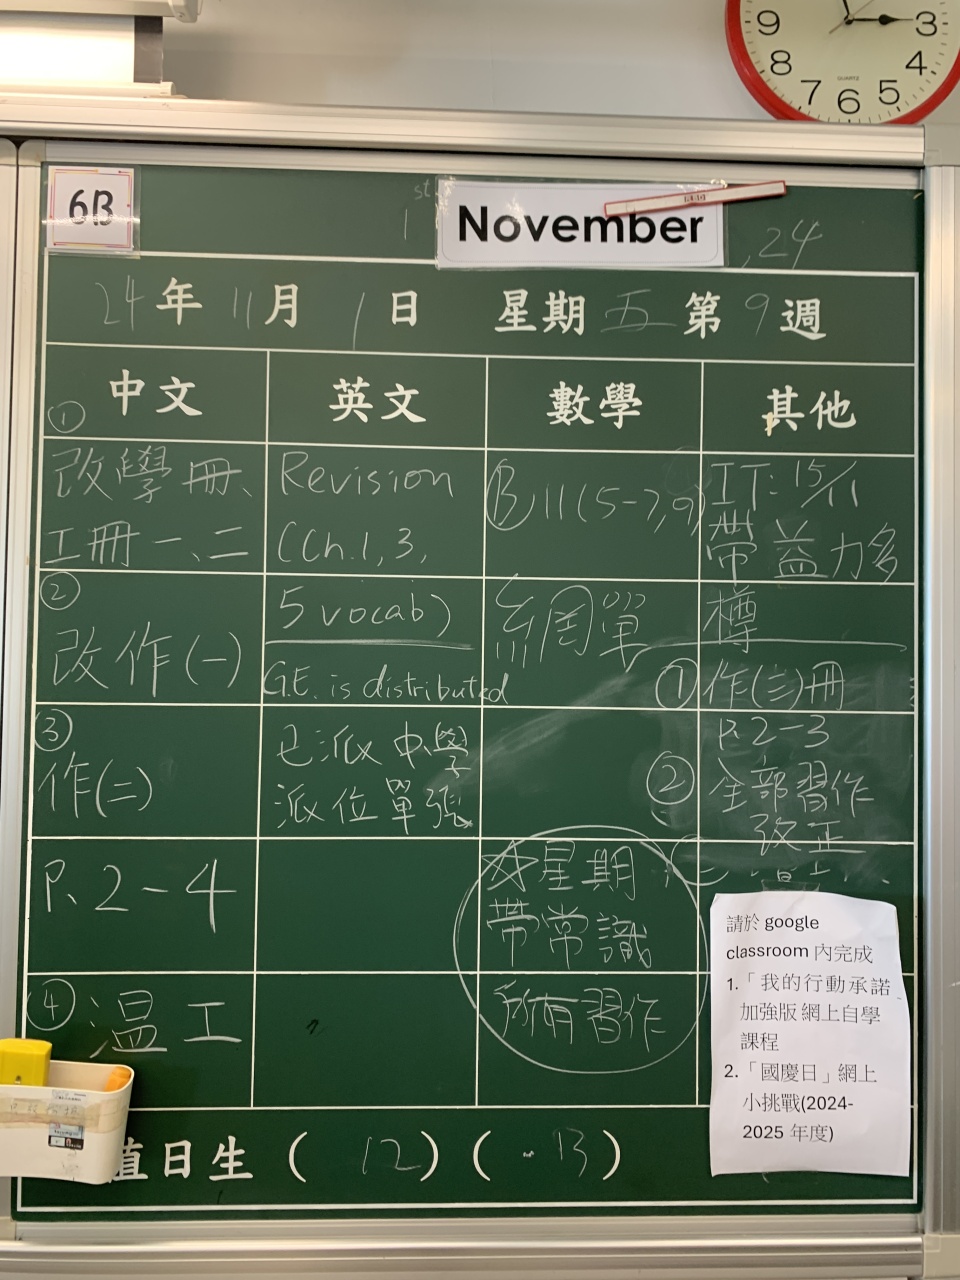 9
3
8
4
7
6
5
QUARTZ
6B
1st
November
,24
24年11月1日 星期五第9週
中文
英文
數學
其他
①
改學冊、
工冊一、二
②
改作(一)
③
作(二)
P.2-4
④温工
Revision
(Ch.1,3,
5 vocab)
G.E. is distributed
已派中學
派位單張
Ⓑ11(5-7,9)
網單
☆星期
帶常識
所有習作
IT: 15/11
帶益力多
樽
①作(三)冊
P.2-3
②全部習作
改正
請於 google
classroom 內完成
1.「我的行動承諾
加強版 網上自學
課程
2.「國慶日」網上
小挑戰(2024-
2025 年度)
值日生(12)(13)